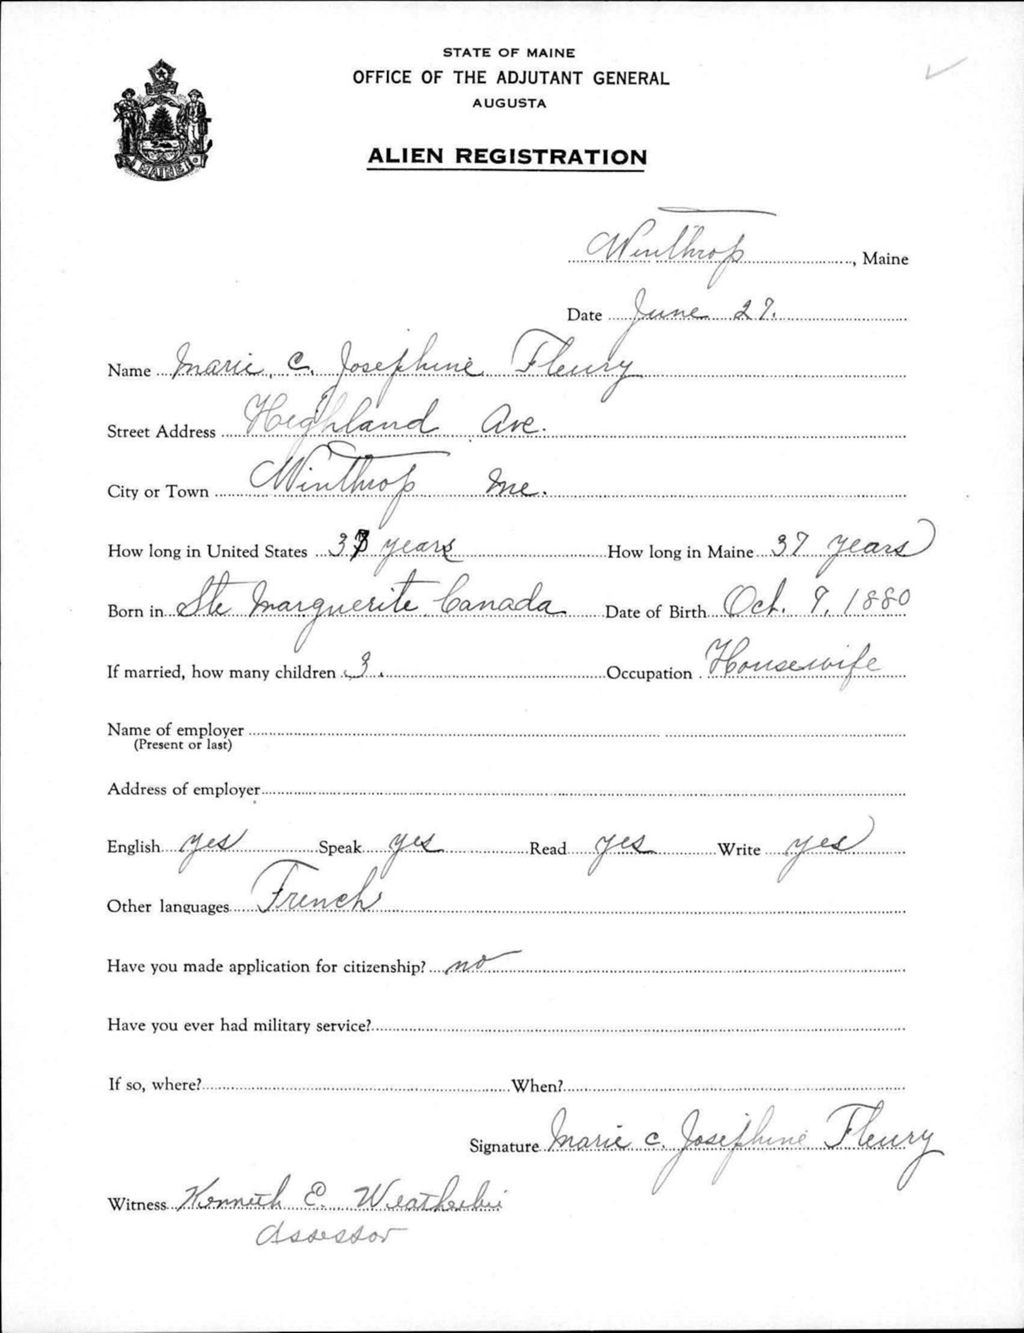 STATE OF MAINE
OFFICE OF THE ADJUTANT GENERAL
AUGUSTA
ALIEN REGISTRATION
MAINE
Winthrop, Maine
Date June 27.
Name Marie C. Josephine Fleury
Street Address Highland Ave.
City or Town Winthrop Me.
How long in United States 37 years How long in Maine 37 years
Born in Ste Marguerite Canada Date of Birth Oct. 9, 1880
If married, how many children 3. Occupation Housewife
Name of employer
(Present or last)
Address of employer
English yes Speak yes Read yes Write yes
Other languages French
Have you made application for citizenship? no
Have you ever had military service?
If so, where? When?
Signature Marie C. Josephine Fleury
Witness Kenneth E. Weatherbee
Assessor